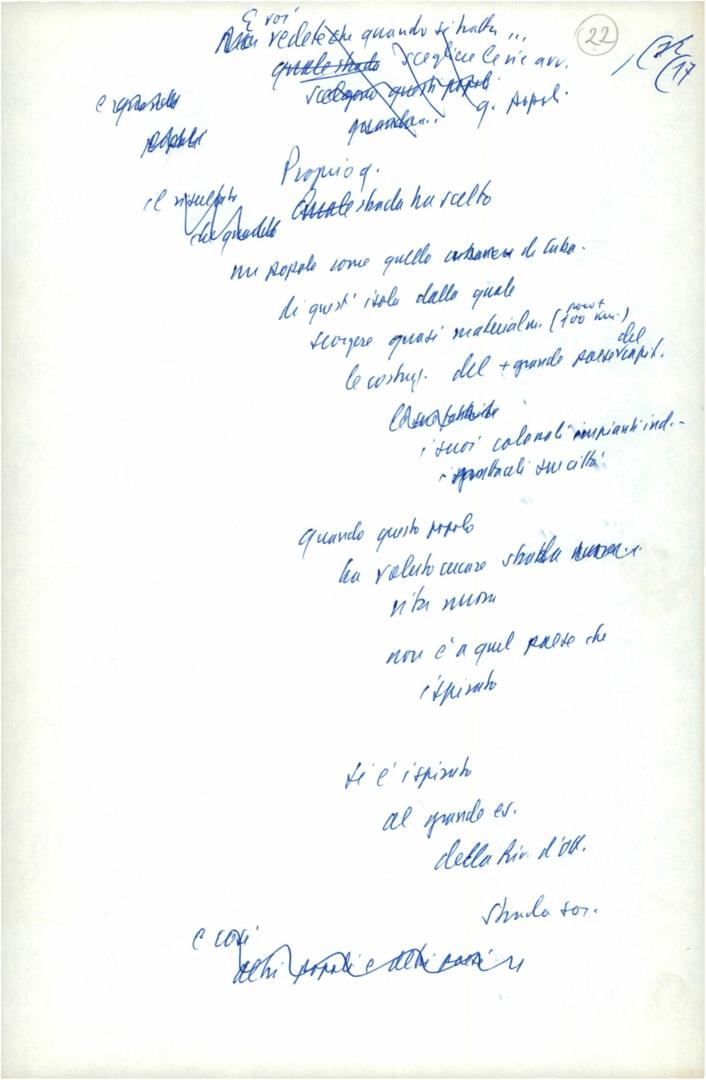 E voi
vedete che quando si tratta ...
quale strada scegliere le vie avv.
scelgono questi popoli
quando... q. popoli
22
e quando
popoli
Proprio q.
il risultato
Quale strada ha scelto
che quando
un popolo come quello cubano di Cuba.
di quest'isola dalla quale
scorgere quasi materialm. (100 km.)
le costruz. del + grande paese del capit.
i suoi colossali impianti ind.
sue città
quando questo popolo
ha voluto cercare strada nuova
vita nuova
non è a quel paese che
ispirato
si è ispirato
al grande es.
della Riv. d'Ott.
strada soc.
e così
altri popoli e altri paesi